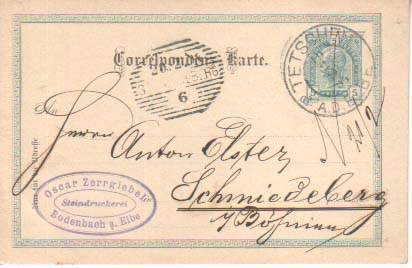 Correspondenz-Karte.
TETSCHEN
A.D. ELBE
5
6
An
Herrn
Anton Elster,
Schmiedeberg
i/Böhmen
Oscar Zerrgiebel's
Steindruckerei
Bodenbach a. Elbe